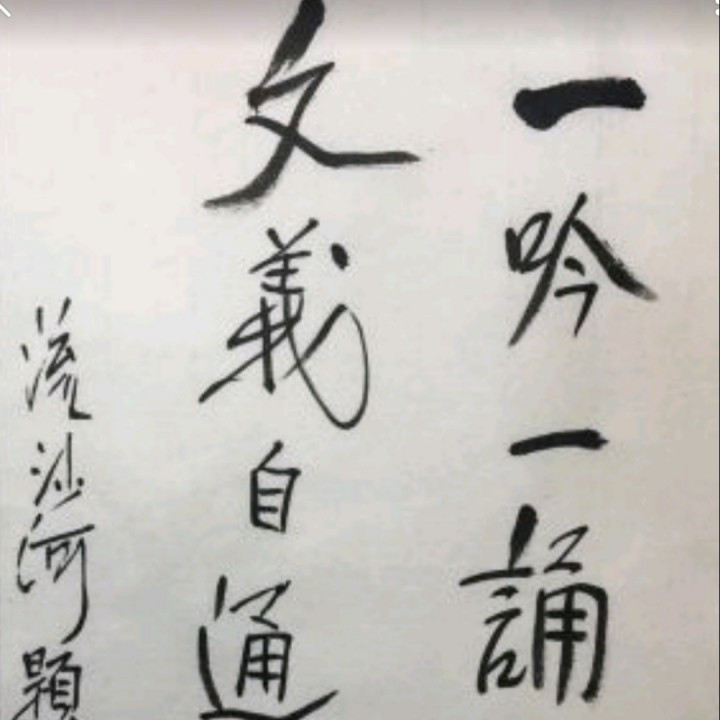 一吟一誦
文義自通
流沙河題